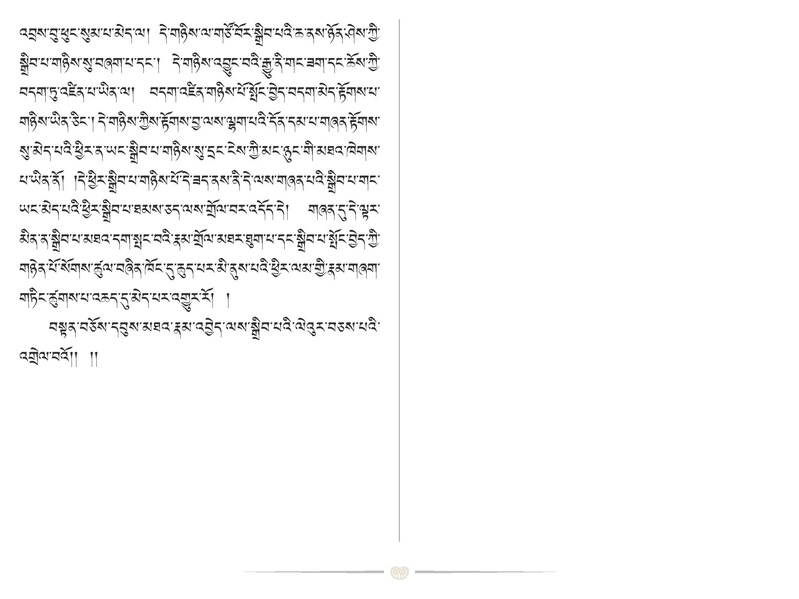 འབྲས་བུ་ཕུང་སུམ་པ་མེད་ལ། དེ་གཉིས་ལ་གཙོ་བོར་སྒྲིབ་པའི་ཆ་ནས་ཉོན་ཤེས་ཀྱི་
སྒྲིབ་པ་གཉིས་སུ་བཞག་པ་དང་། དེ་གཉིས་འབྱུང་བའི་རྒྱུ་ནི་གང་ཟག་དང་ཆོས་ཀྱི་
བདག་ཏུ་འཛིན་པ་ཡིན་ལ། བདག་འཛིན་གཉིས་པོ་སྤོང་བྱེད་བདག་མེད་རྟོགས་པ་
གཉིས་ཡིན་ཅིང་། དེ་གཉིས་ཀྱིས་རྟོགས་བྱ་ལས་ལྷག་པའི་དོན་དམ་པ་གཞན་རྟོགས་
སུ་མེད་པའི་ཕྱིར་ན་ཡང་སྒྲིབ་པ་གཉིས་སུ་དྲང་ངེས་ཀྱི་མང་ཉུང་གི་མཐའ་ཁེགས་
པ་ཡིན་ནོ། །དེ་ཕྱིར་སྒྲིབ་པ་གཉིས་པོ་དེ་ཟད་ནས་ནི་དེ་ལས་གཞན་པའི་སྒྲིབ་པ་གང་
ཡང་མེད་པའི་ཕྱིར་སྒྲིབ་པ་ཐམས་ཅད་ལས་གྲོལ་བར་འདོད་དེ། གཞན་དུ་དེ་ལྟར་
མིན་ན་སྒྲིབ་པ་མཐའ་དག་སྤང་བའི་རྣམ་གྲོལ་མཐར་ཐུག་པ་དང་སྒྲིབ་པ་སྤོང་བྱེད་ཀྱི་
གཉེན་པོ་སོགས་ཚུལ་བཞིན་ཁོང་དུ་ཆུད་པར་མི་ནུས་པའི་ཕྱིར་ལམ་གྱི་རྣམ་གཞག་
གཏིང་ཚུགས་པ་འཆད་དུ་མེད་པར་འགྱུར་རོ། །
བསྟན་བཅོས་དབུས་མཐའ་རྣམ་འབྱེད་ལས་སྒྲིབ་པའི་ལེའུར་བཅས་པའི་
འགྲེལ་བའོ།། །།